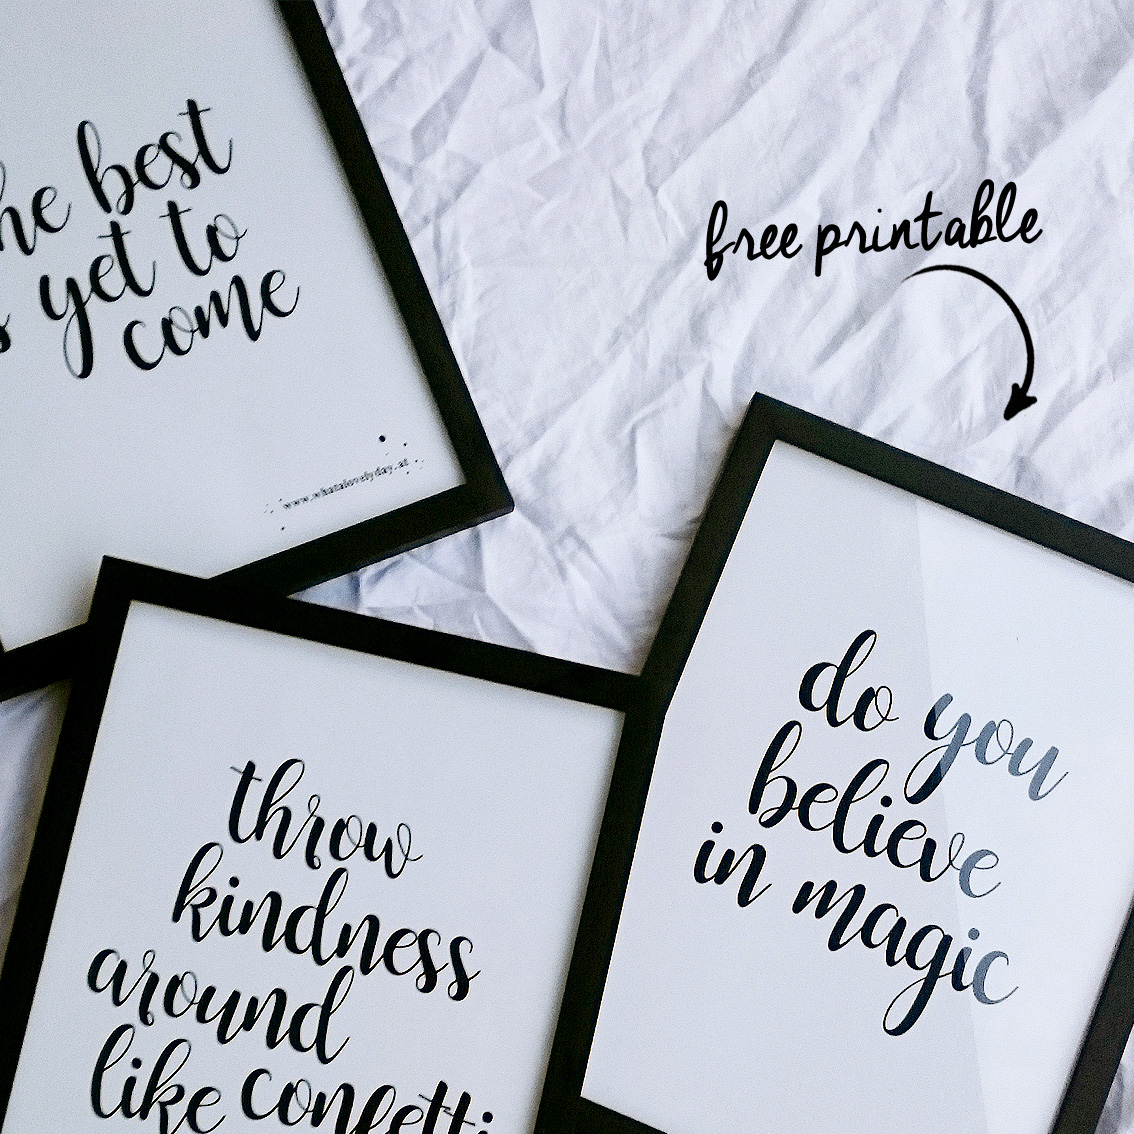 he best
s yet to
come
www.whatalovelyday.at
free printable
throw
kindness
around
like confetti
do you
believe
in magic